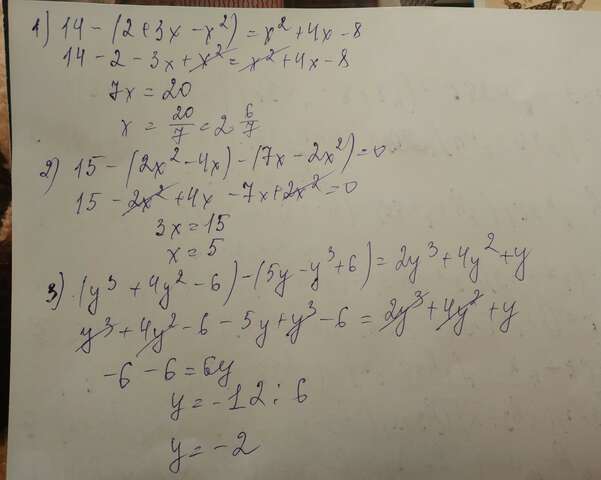 1) 14 - (2 + 3x - x²) = x² + 4x - 8
14 - 2 - 3x + x² = x² + 4x - 8
7x = 20
x = 20/7 = 2 6/7
2) 15 - (2x² - 4x) - (7x - 2x²) = 0
15 - 2x² + 4x - 7x + 2x² = 0
3x = 15
x = 5
3) (y³ + 4y² - 6) - (5y - y³ + 6) = 2y³ + 4y² + y
y³ + 4y² - 6 - 5y + y³ - 6 = 2y³ + 4y² + y
-6 - 6 = 6y
y = -12 : 6
y = -2